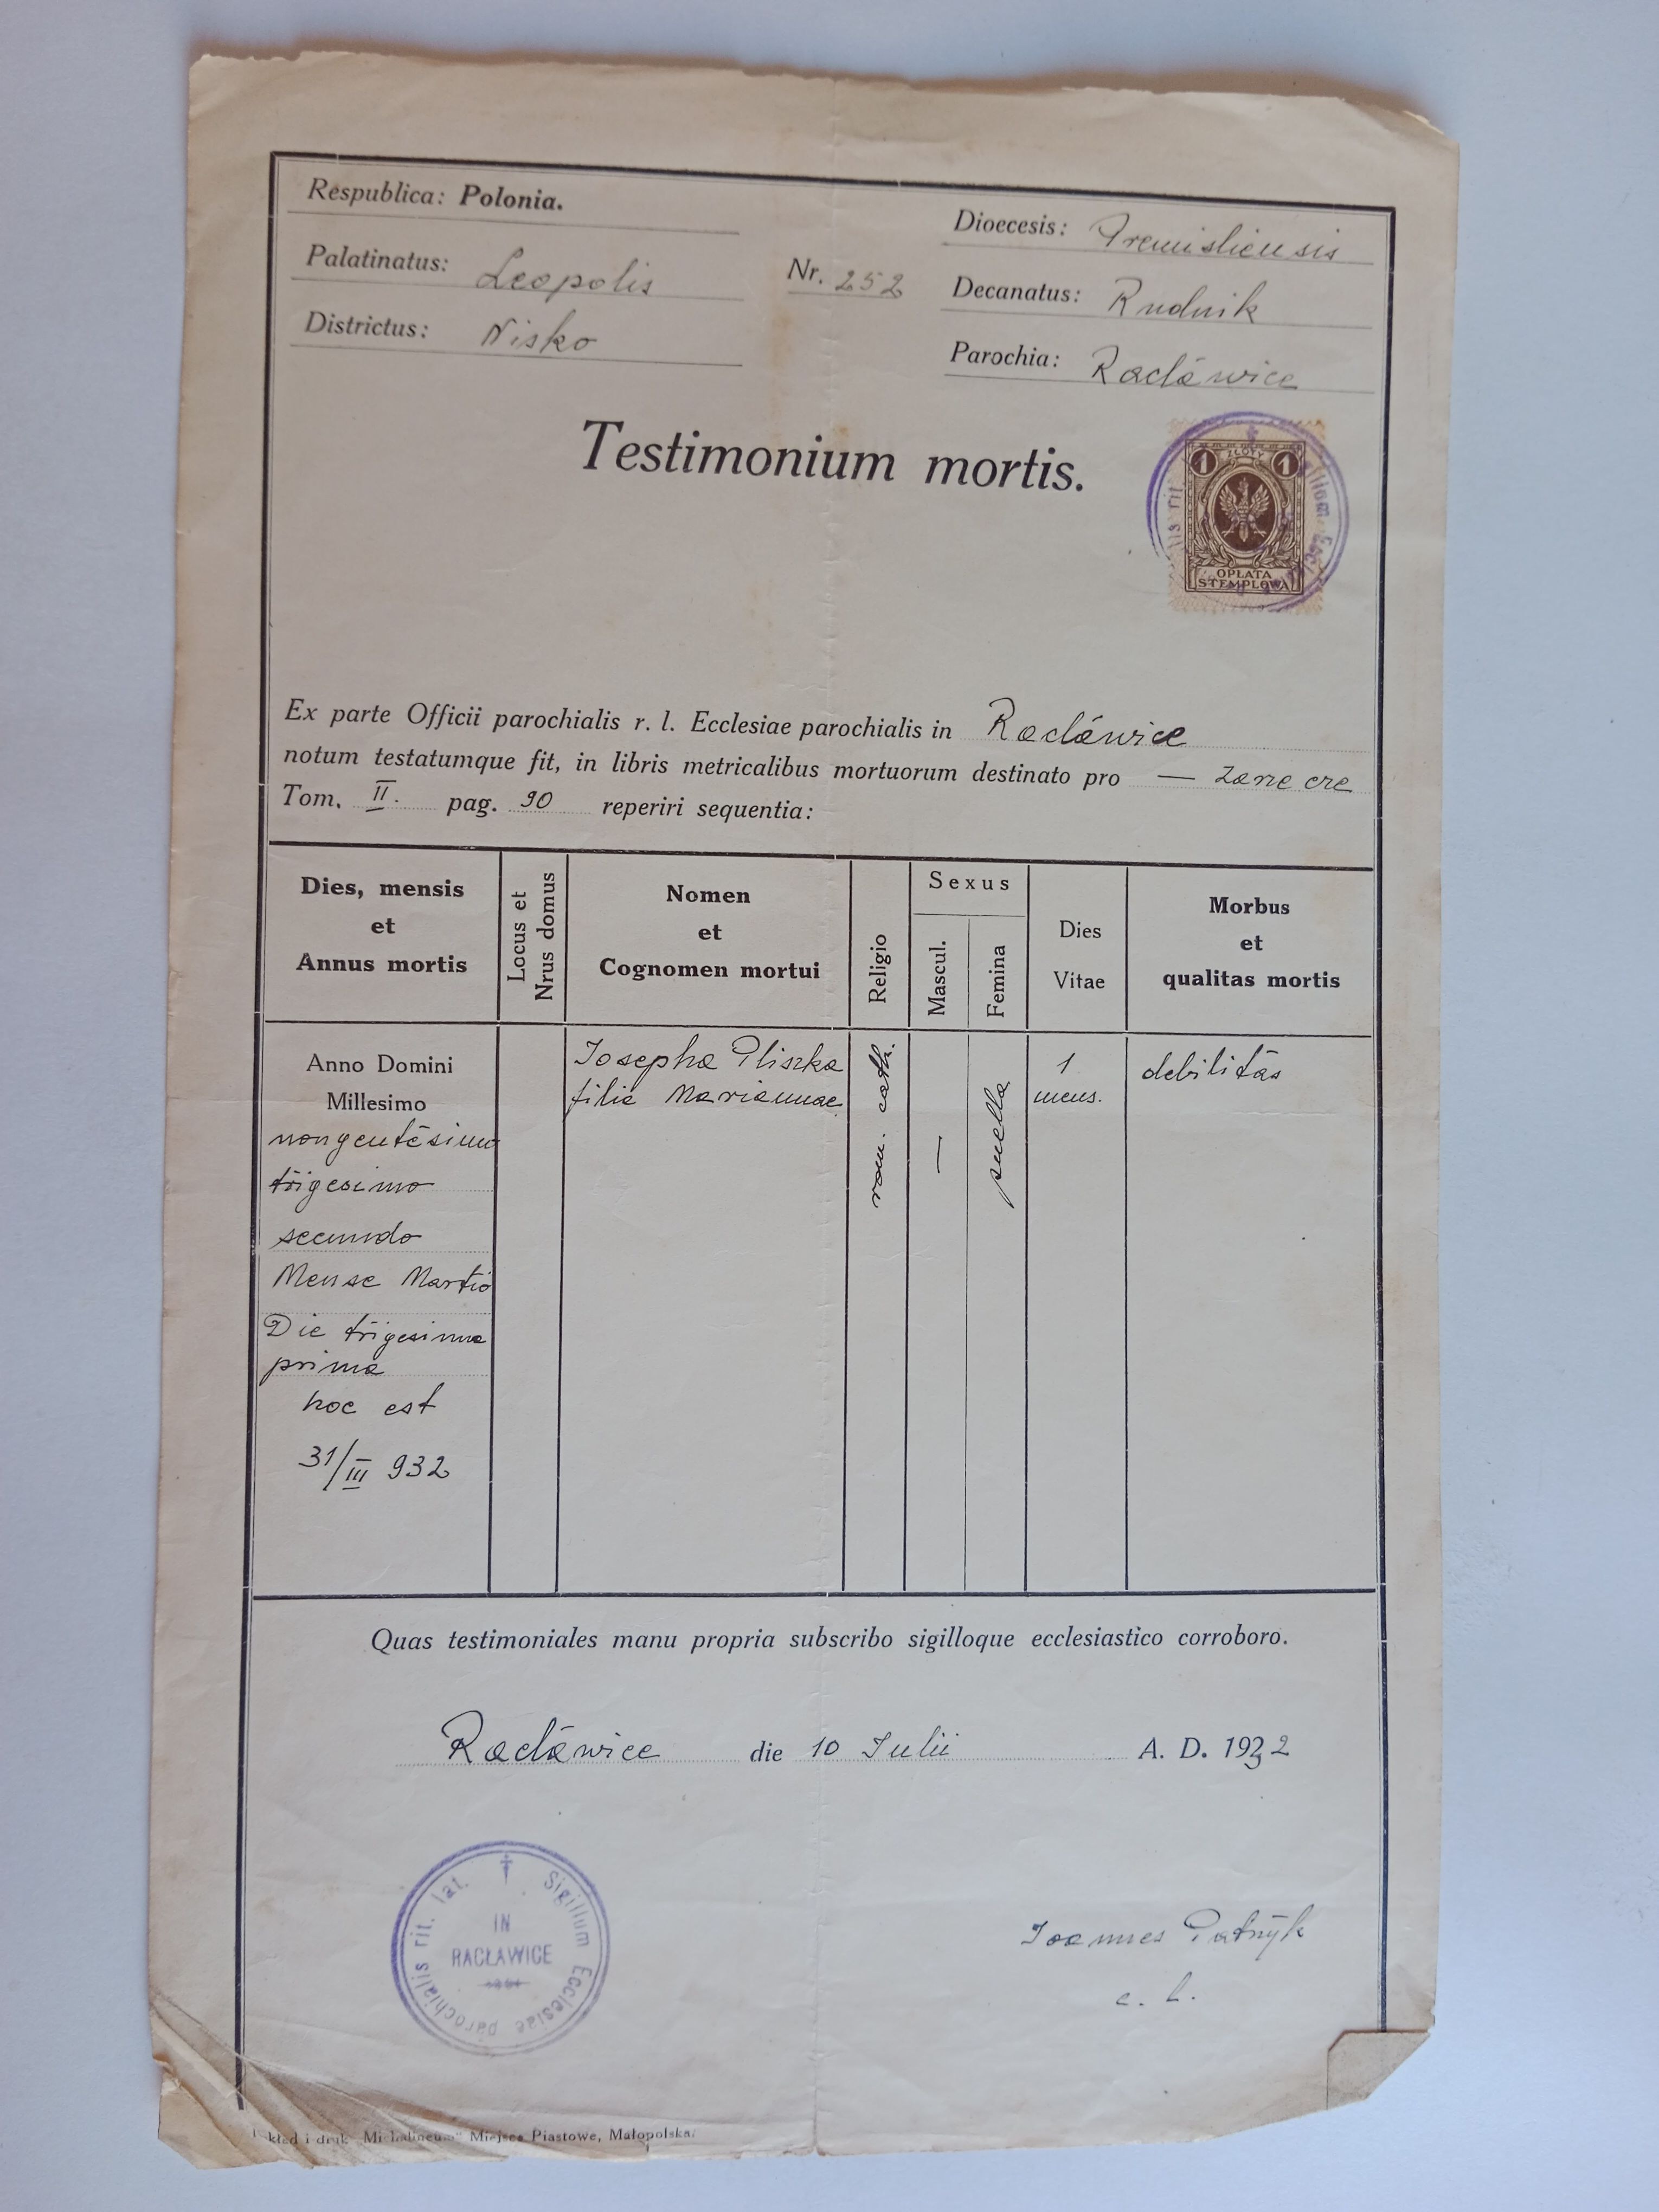 Respublica: Polonia.
Palatinatus: Leopolis
Districtus: Nisko
Nr. 252
Dioecesis: Premisliensis
Decanatus: Rudnik
Parochia: Racławice
Testimonium mortis.
1 ZŁOTY 1
OPŁATA
STEMPLOWA
Ex parte Officii parochialis r. l. Ecclesiae parochialis in Racławice
notum testatumque fit, in libris metricalibus mortuorum destinato pro —
Tom. II. pag. 90 reperiri sequentia:
Dies, mensis
et
Annus mortis
Locus et
Nrus domus
Nomen
et
Cognomen mortui
Religio
Sexus
Mascul.
Femina
Dies
Vitae
Morbus
et
qualitas mortis
Anno Domini
Millesimo
nongentesimo
trigesimo
secundo
Mense Martio
Die trigesima
prima
hoc est
31/III 932
Josepha Pliszka
filia Mariannae
rom. cath.
—
puella
1
mens.
debilitas
Quas testimoniales manu propria subscribo sigilloque ecclesiastico corroboro.
Racławice die 10 Julii A. D. 1932
Sigillum Ecclesiae parochialis rit. lat.
IN
RACŁAWICE
Joannes Patryk
kład i druk „Michalineum" Miejsce Piastowe, Małopolska.